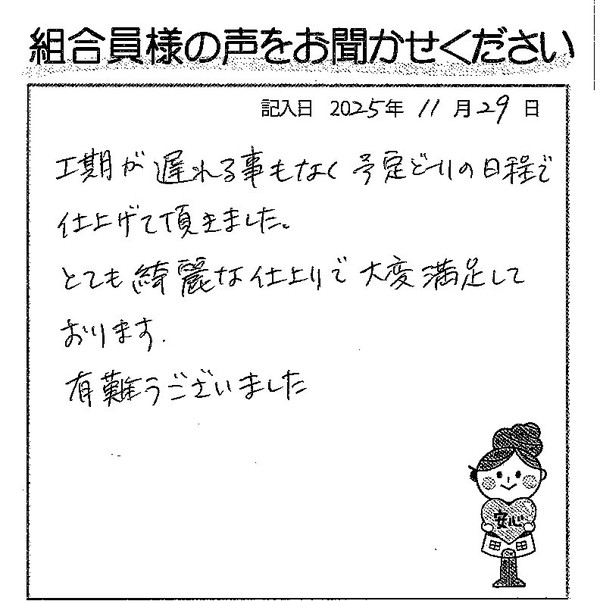 組合員様の声をお聞かせください
記入日 2025年 11月29日
工期が遅れる事もなく予定どうりの日程で
仕上げて頂きました。
とても綺麗な仕上りで大変満足して
おります.
有難うございました
安心